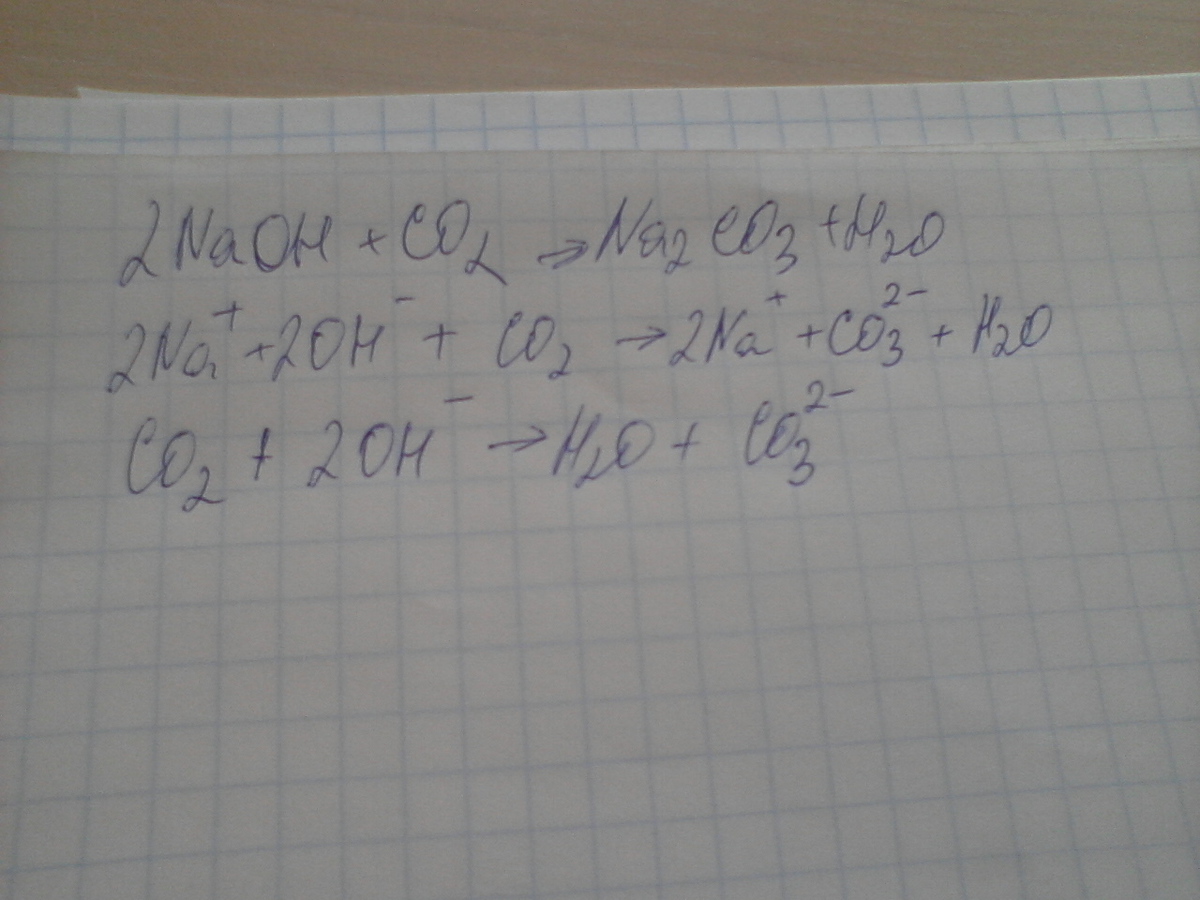 2NaOH + CO₂ → Na₂CO₃ + H₂O
2Na⁺ + 2OH⁻ + CO₂ → 2Na⁺ + CO₃²⁻ + H₂O
CO₂ + 2OH⁻ → H₂O + CO₃²⁻